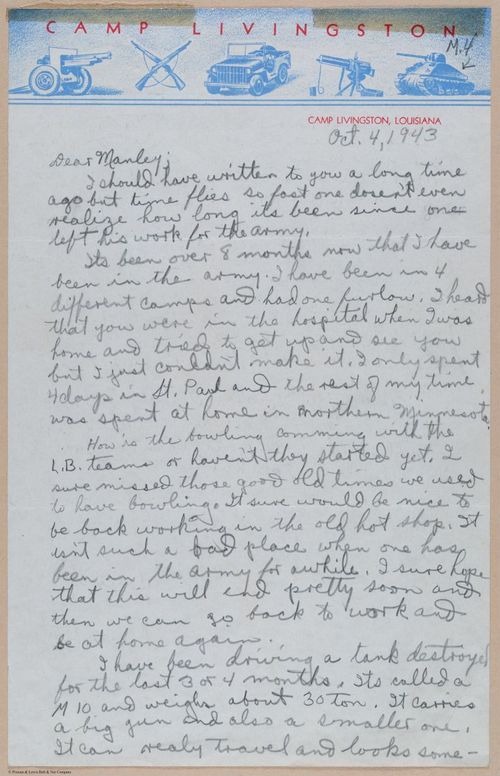 CAMP LIVINGSTON
M.4
CAMP LIVINGSTON, LOUISIANA
Oct. 4, 1943
Dear Manley;
I should have written to you a long time
ago but time flies so fast one doesn't even
realize how long its been since one
left his work for the army.
Its been over 8 months now that I have
been in the army. I have been in 4
different camps and had one furlow. I heard
that you were in the hospital when I was
home and tried to get up and see you
but I just couldn't make it. I only spent
4 days in St. Paul and the rest of my time
was spent at home in northern Minnesota.
How is the bowling comming with the
L.B. teams or havent they started yet. I
sure missed those good old times we used
to have bowling. It sure would be nice to
be back working in the old hot shop. It
isn't such a bad place when one has
been in the army for awhile. I sure hope
that this will end pretty soon and
then we can go back to work and
be at home again.
I have been driving a tank destroyer
for the last 3 or 4 months. Its called a
M 10 and weighs about 30 ton. It carries
a big gun and also a smaller one.
It can realy travel and looks some-